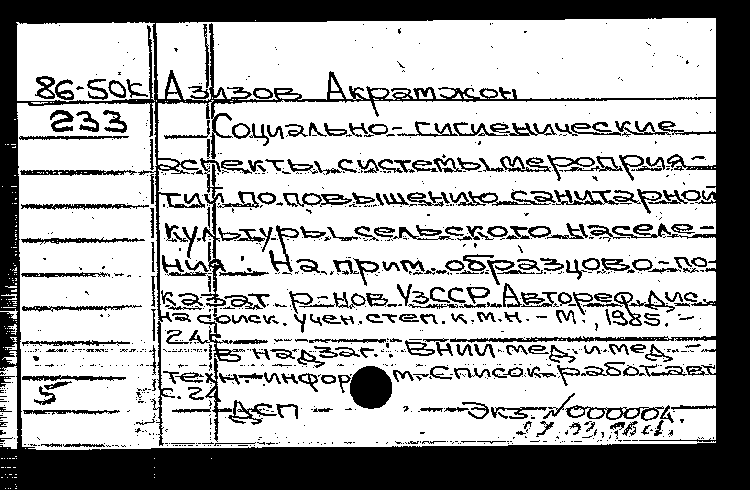 86-50к Азизов Акрамжон
233 Социально-гигиенические
аспекты системы мероприя-
тий по повышению санитарной
культуры сельского населе-
ния: На прим. образцово-по-
казат. р-нов УзССР Автореф. дис.
на соиск. учен. степ. к.м.н. - М., 1985. -
24 с.
В надзаг.: ВНИИ мед. и мед.-
техн. информ. Список работ авт.
с. 24
5 ДСП Экз. N 000004.